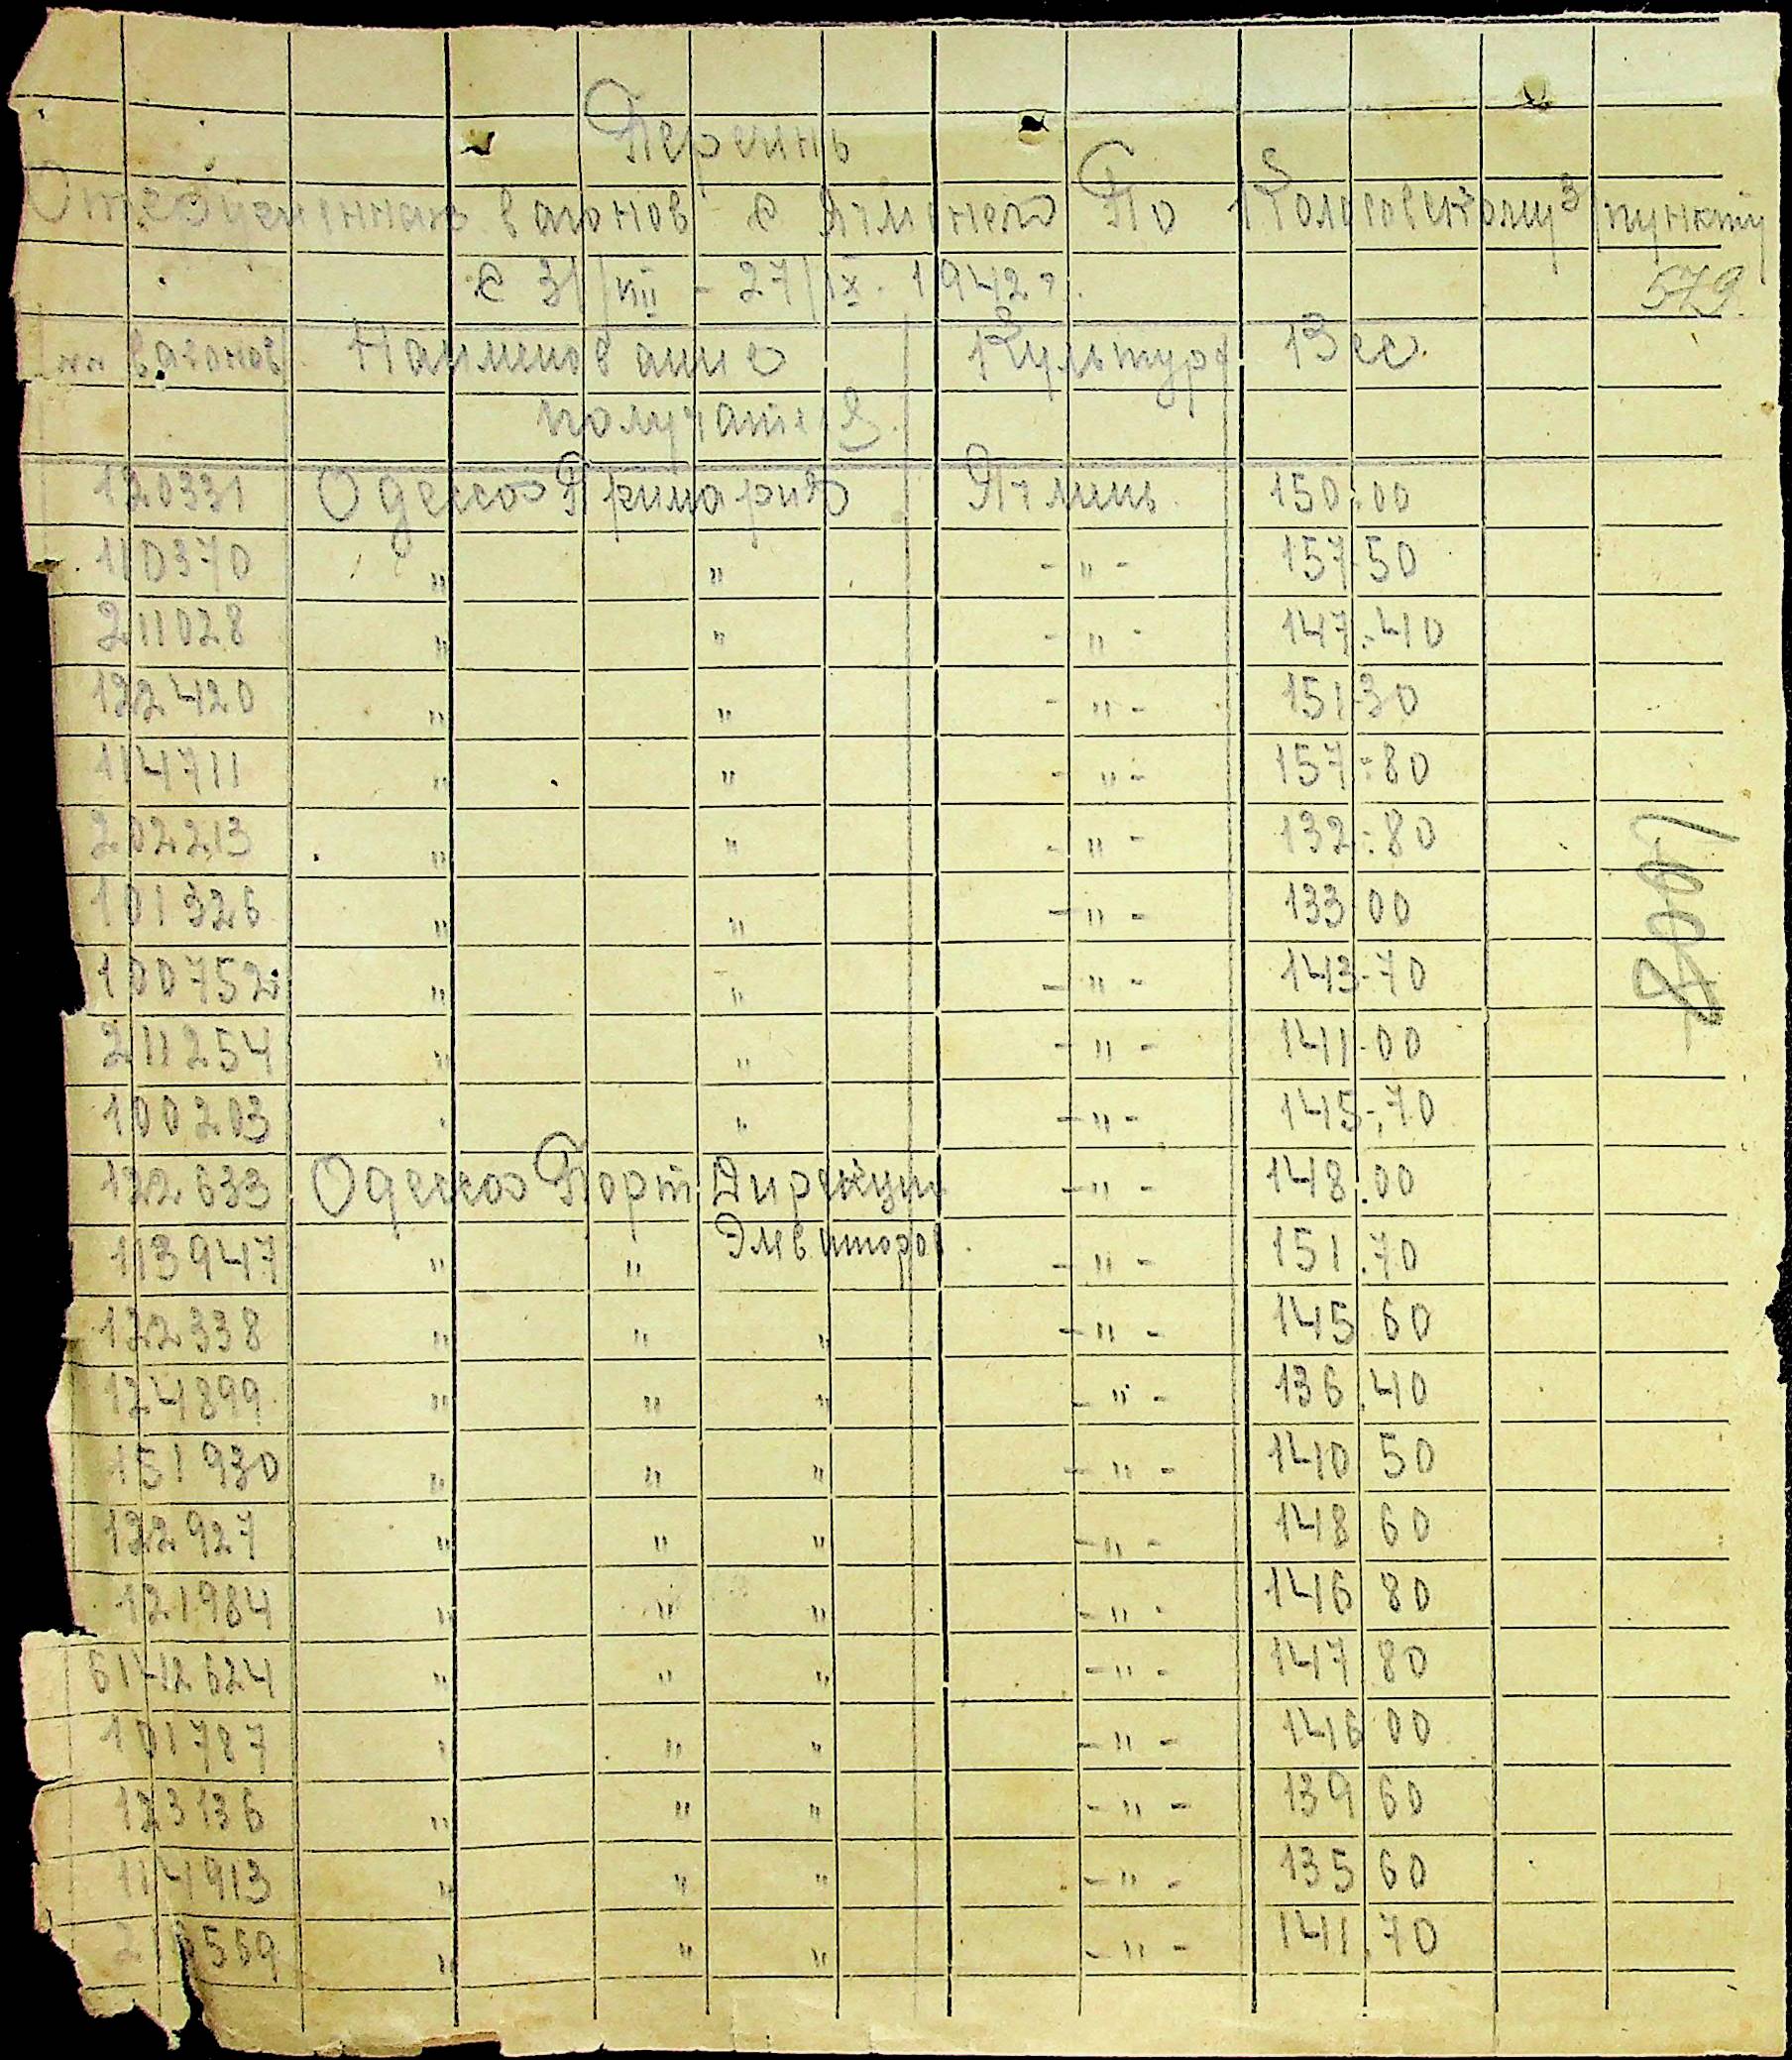 Перечинь
Отгруженных вагонов с Ячменем По Колосовскому з пункту
с 31/VIII - 27/IX - 1942 г.
579
нн вагонов Наименование Культура Вес
получателя
120331 Одесса Примария Ячмень 150:00
110370 " " - " - 157-50
211028 " " - " - 147-40
122420 " " - " - 151-30
114711 " " - " - 157-80
202213 " " - " - 132-80
101326 " " - " - 133 00
100752 " " - " - 143-70
211254 " " - " - 141-00
100203 " " - " - 145-70
122633 Одесса Порт Дирекции - " - 148.00
Элеваторов
113947 " " - " - 151.70
122338 " " " - " - 145 60
124899 " " " - " - 136.40
151930 " " " - " - 140 50
122927 " " " - " - 148 60
121984 " " " - " - 146 80
61412624 " " " - " - 147 80
101787 " " " - " - 146 00
123136 " " " - " - 139 60
114913 " " " - " - 135 60
559 " " " - " - 141.70